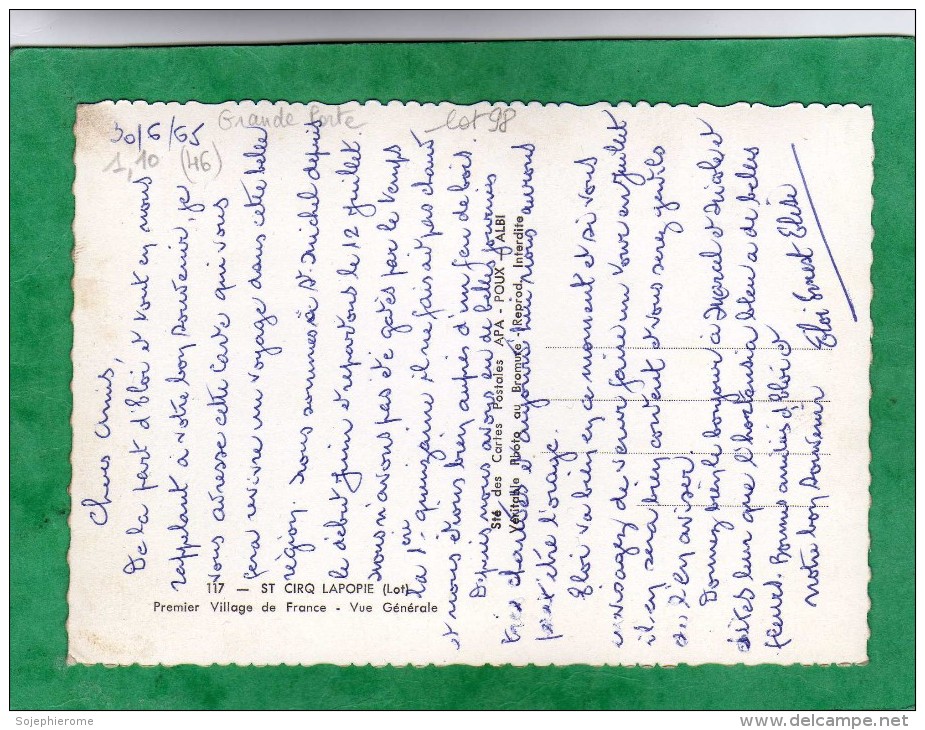 30/6/65
Grande Carte
lot 98
1,10 (46)
Chers Amis,
De la part d'Eloi et tout en nous
rappelant à votre bon souvenir, je
vous adresse cette carte qui vous
fera revivre un voyage dans cette belle
région. Nous sommes à St Michel depuis
le début juin et repartons le 12 juillet.
nous n'avons pas été gatés par le temps
la 1ère quinzaine il ne faisait pas chaud
et nous étions bien auprès d'un feu de bois.
Depuis nous avons eu de belles journées
très chaudes et aujourd'hui nous aurons
peut être l'orage.
Eloi va bien en ce moment et si vous
envisagez de venir faire un tour en juillet
il en sera bien content et vous serez gentils
de l'en aviser.
Donnez bien le bonjour à Marcel et Nicole et
dites leur que l'hortensia bleu a de belles
fleurs. Bonne amitié d'Eloi et
notre bon souvenir
Eloi Ernest Elise
117 — ST CIRQ LAPOPIE (Lot)
Premier Village de France - Vue Générale
Sté des Cartes Postales APA - POUX - ALBI
Véritable Photo au Bromure (Reprod. Interdite
Sojephierome
www.delcampe.net